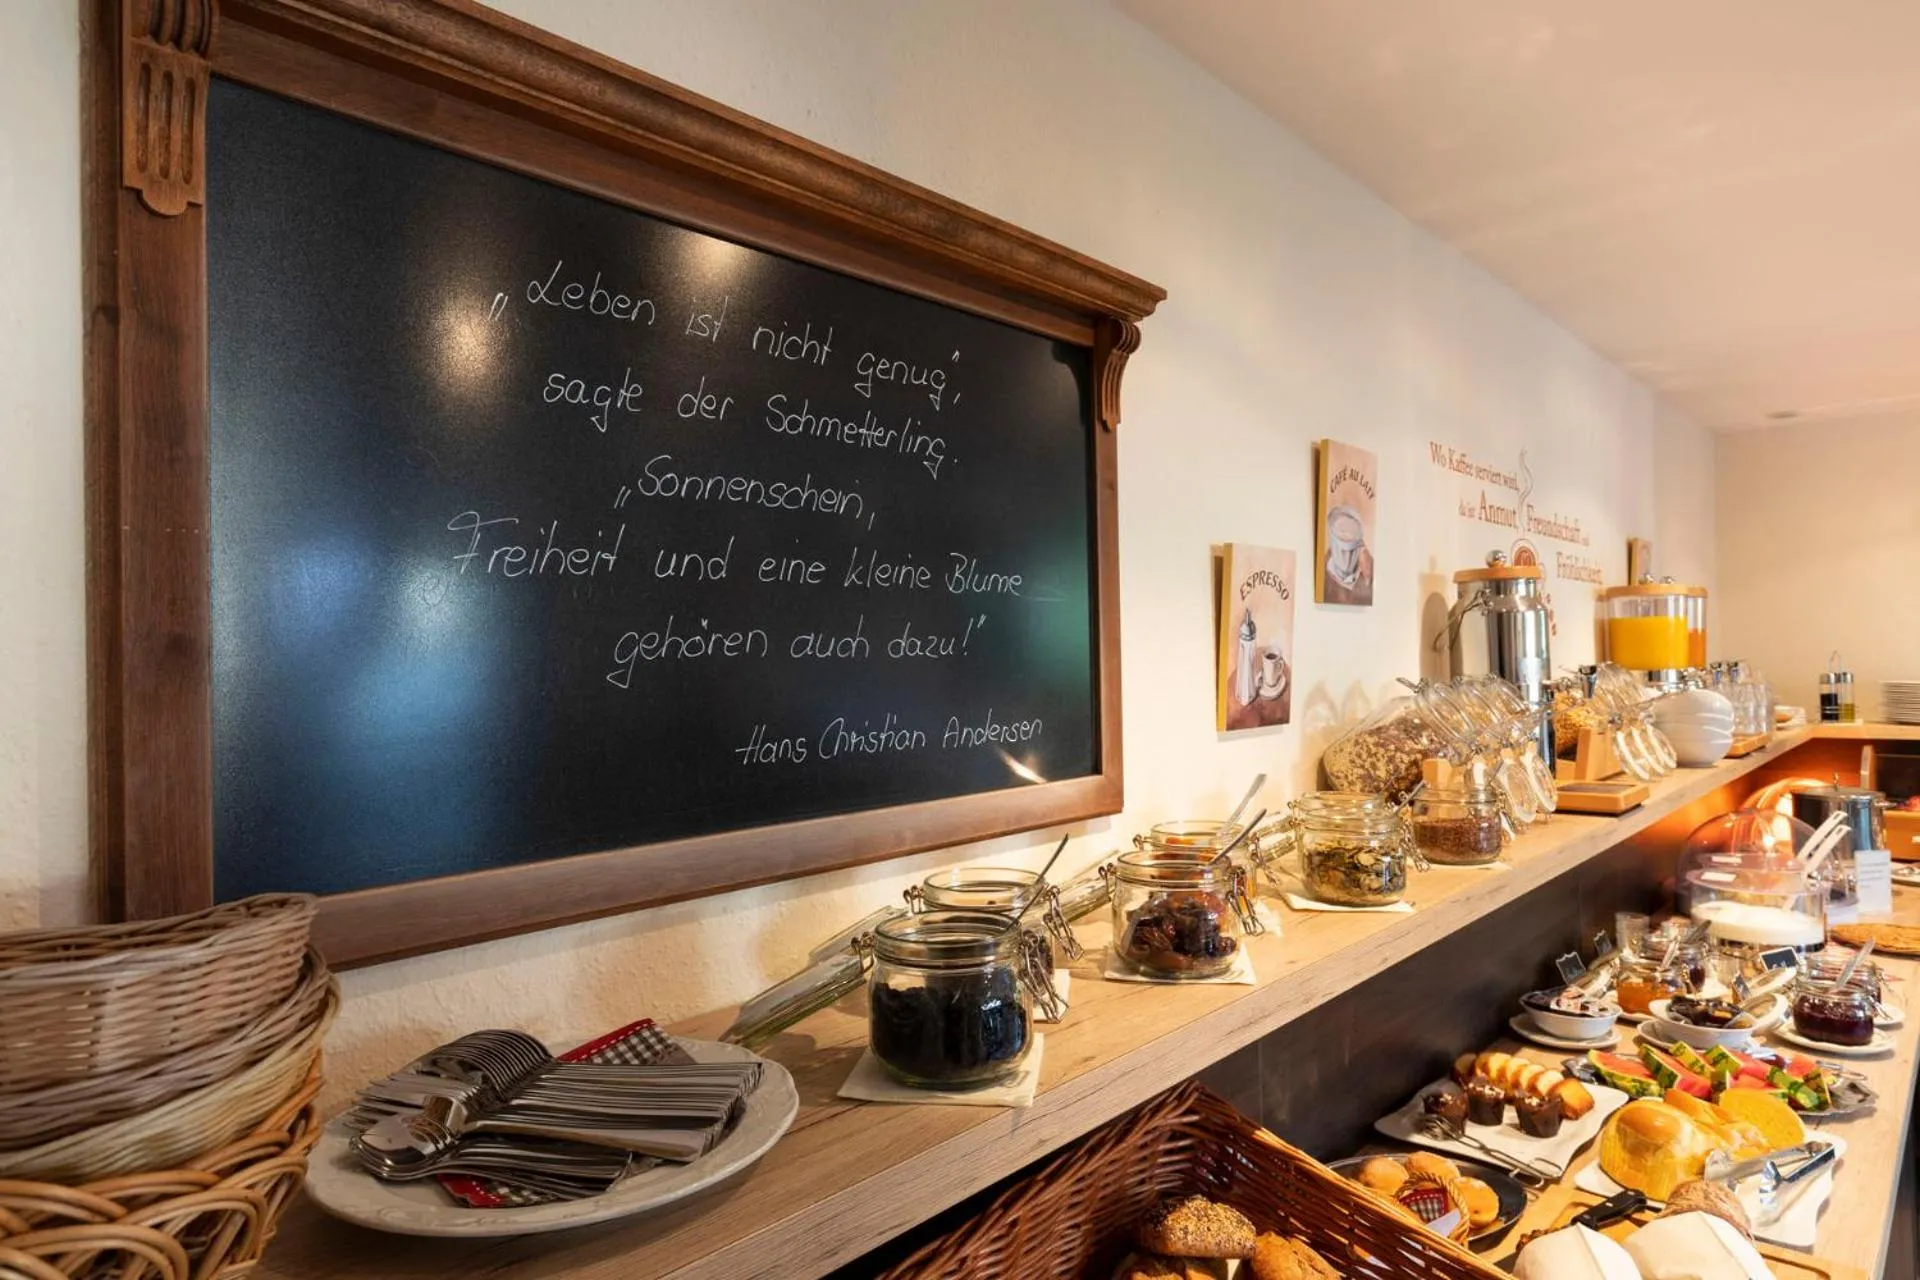 „Leben ist nicht genug”,
sagte der Schmetterling.
„Sonnenschein,
Freiheit und eine kleine Blume
gehören auch dazu!”
Hans Christian Andersen
CAFÉ AU LAIT
ESPRESSO
Wo Kaffee serviert wird,
da ist Anmut, Freundschaft und
Fröhlichkeit.